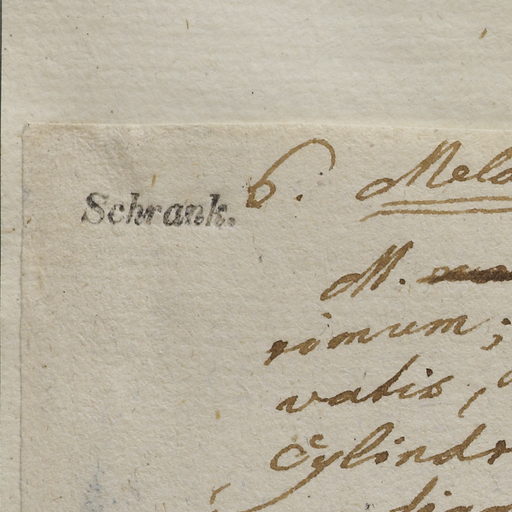 Schrank. 6. Melo
M.
rimum;
vatis,
Cylindr